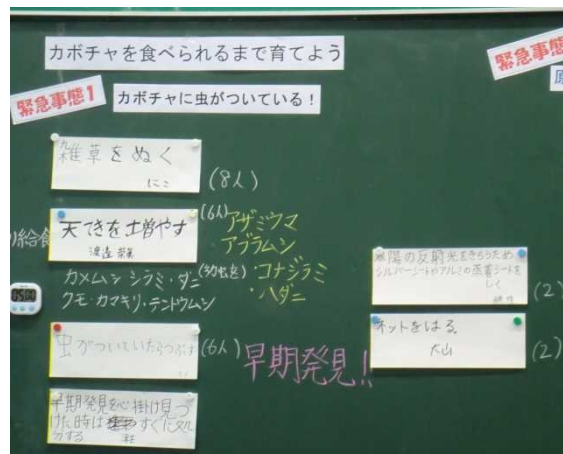 カボチャを食べられるまで育てよう
緊急事態1
カボチャに虫がついている！
緊急事態
原
雑草をぬく
にこ
(8人)
天てきを増やす
(6人)
アザミウマ
・アブラムシ
・コナジラミ
・ハダニ
カメムシ シラミ・ダニ
クモ・カマキリ・テントウムシ
給食
05:00
虫がついていたらつぶす
(6人)
早期発見!!
早期発見を心掛け見つ
けた時は すぐに処
分する
太陽の反射光をきらうため
シルバーシートやアルミの蒸着シートを
しく
(2)
ネットをはる。
大山
(2)